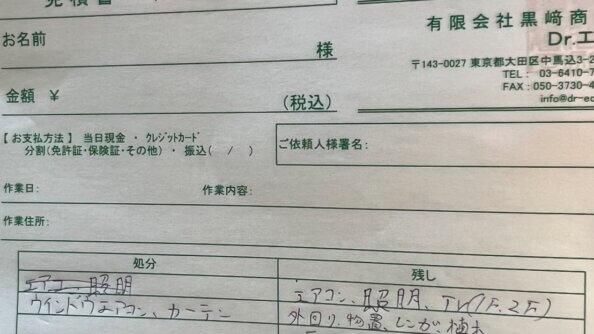 見積書
有限会社黒﨑商
Dr.エ
お名前
様
〒143-0027 東京都大田区中馬込3-
TEL： 03-6410-7
FAX：050-3730-4
info@dr-ec
金額 ¥
(税込)
【お支払方法】 当日現金 ・ クレジットカード
分割(免許証・保険証・その他) ・ 振込( / )
ご依頼人様署名：
作業日：
作業内容：
作業住所：
処分
残し
エアコン、照明
ウインドウエアコン、カーテン
エアコン、照明、TV(1F.2F)
外回り、物置、レンガ、植木